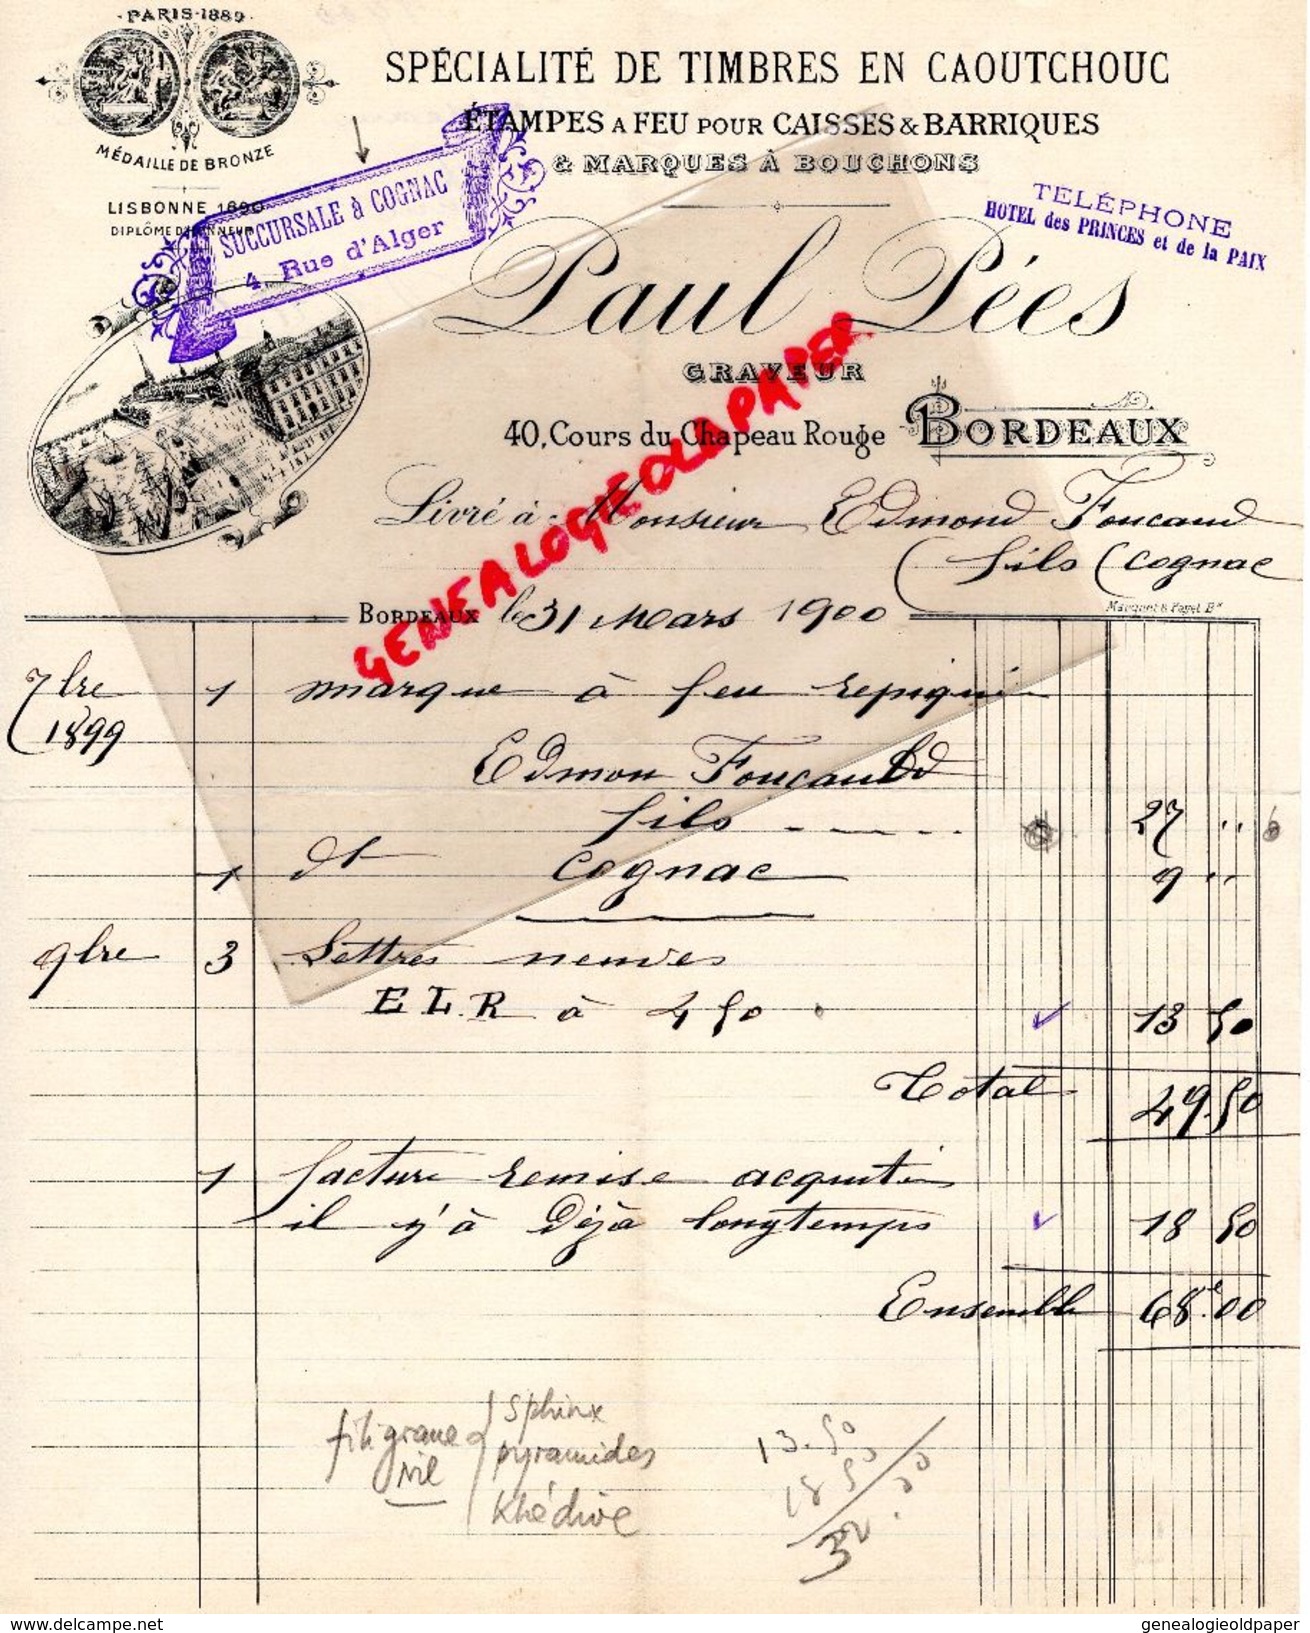 PARIS-1889
MÉDAILLE DE BRONZE
LISBONNE 1890
DIPLÔME D'HONNEUR
SPÉCIALITÉ DE TIMBRES EN CAOUTCHOUC
ÉTAMPES A FEU POUR CAISSES & BARRIQUES
& MARQUES À BOUCHONS
SUCCURSALE à COGNAC
4, Rue d'Alger
TELÉPHONE
HOTEL des PRINCES et de la PAIX
Paul Pées
GRAVEUR
40, Cours du Chapeau Rouge BORDEAUX
GENEALOGIEOLDPAPER
Livré à Monsieur Edmond Foucaud
fils Cognac
Marquet & Paget Bx
BORDEAUX le 31 Mars 1900
7bre 1 marque à feu
1899
Edmon Foucauld
fils 27 ..
1 dt Cognac 9 ..
9bre 3 Lettres neuves
E L R à 4 50 13 50
Total 49.50
1 facture remise acquité
il y'à Déjà longtemps 18 50
Ensemble 68.00
filigrane sphinx
Nil pyramides
Khédive
13.50
18 50
32.00
www.delcampe.net
genealogieoldpaper